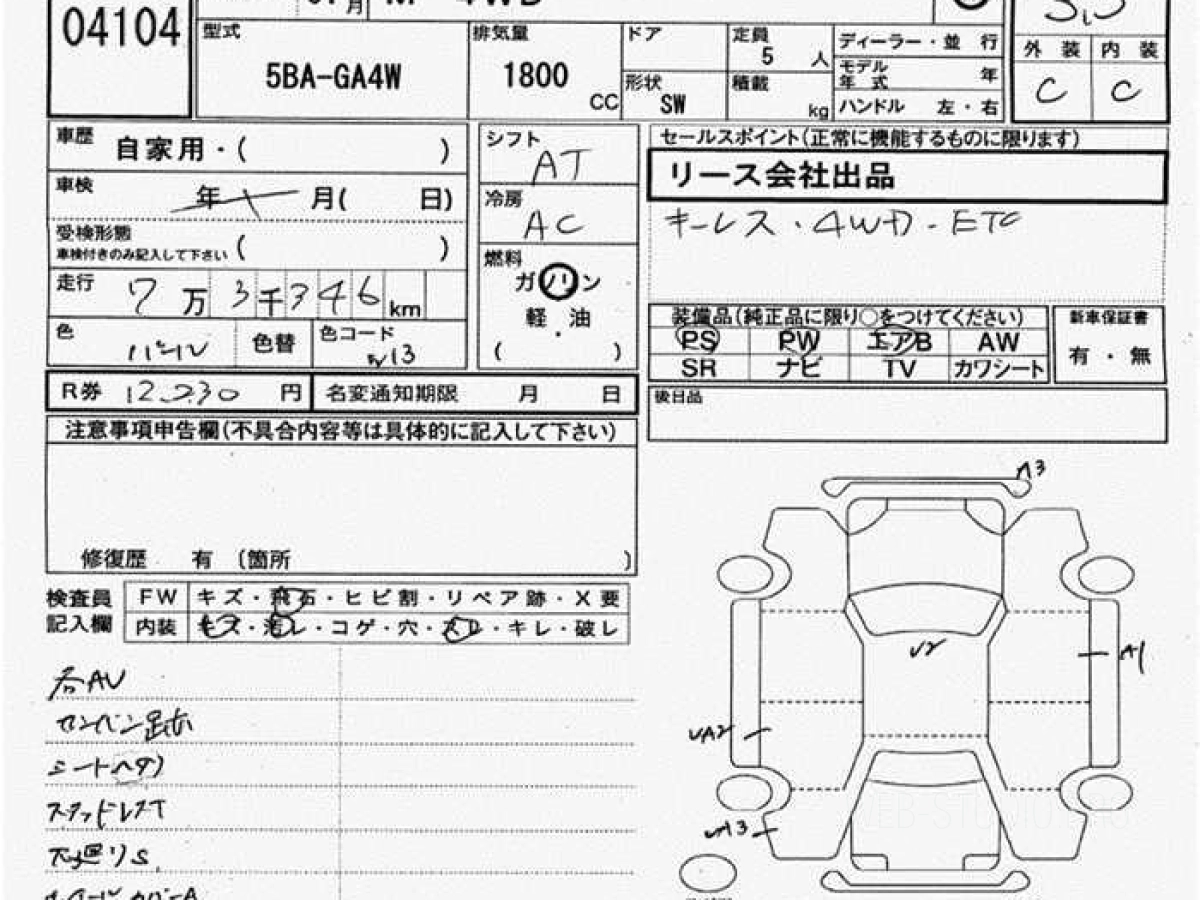 04104
月
型式
5BA-GA4W
排気量
1800
CC
ドア
形状
SW
定員
5 人
積載
kg
ディーラー・並 行
モデル
年 式 年
ハンドル 左・右
外 装 内 装
C C
車歴 自家用・( )
車検 年 月( 日)
受検形態
車検付きのみ記入して下さい ( )
走行 7 万 3 千 3 4 6 km
色 パール 色替 色コード
W13
シフト
AT
冷房
AC
燃料
ガソリン
軽・油
( )
セールスポイント(正常に機能するものに限ります)
リース会社出品
キーレス・4WD-ETC
装備品(純正品に限り○をつけてください)
PS PW エアB AW
SR ナビ TV カワシート
新車保証書
有・無
R券 12230 円 名変通知期限 月 日
後日品
注意事項申告欄(不具合内容等は具体的に記入して下さい)
修復歴 有 (箇所 )
検査員
記入欄
FW キズ・飛石・ヒビ割・リペア跡・X要
内装 キズ・汚レ・コゲ・穴・スレ・キレ・破し
各AU
シートヘタリ
スタッドレスT
下廻りS
A3
V2
A1
VA2
VA3